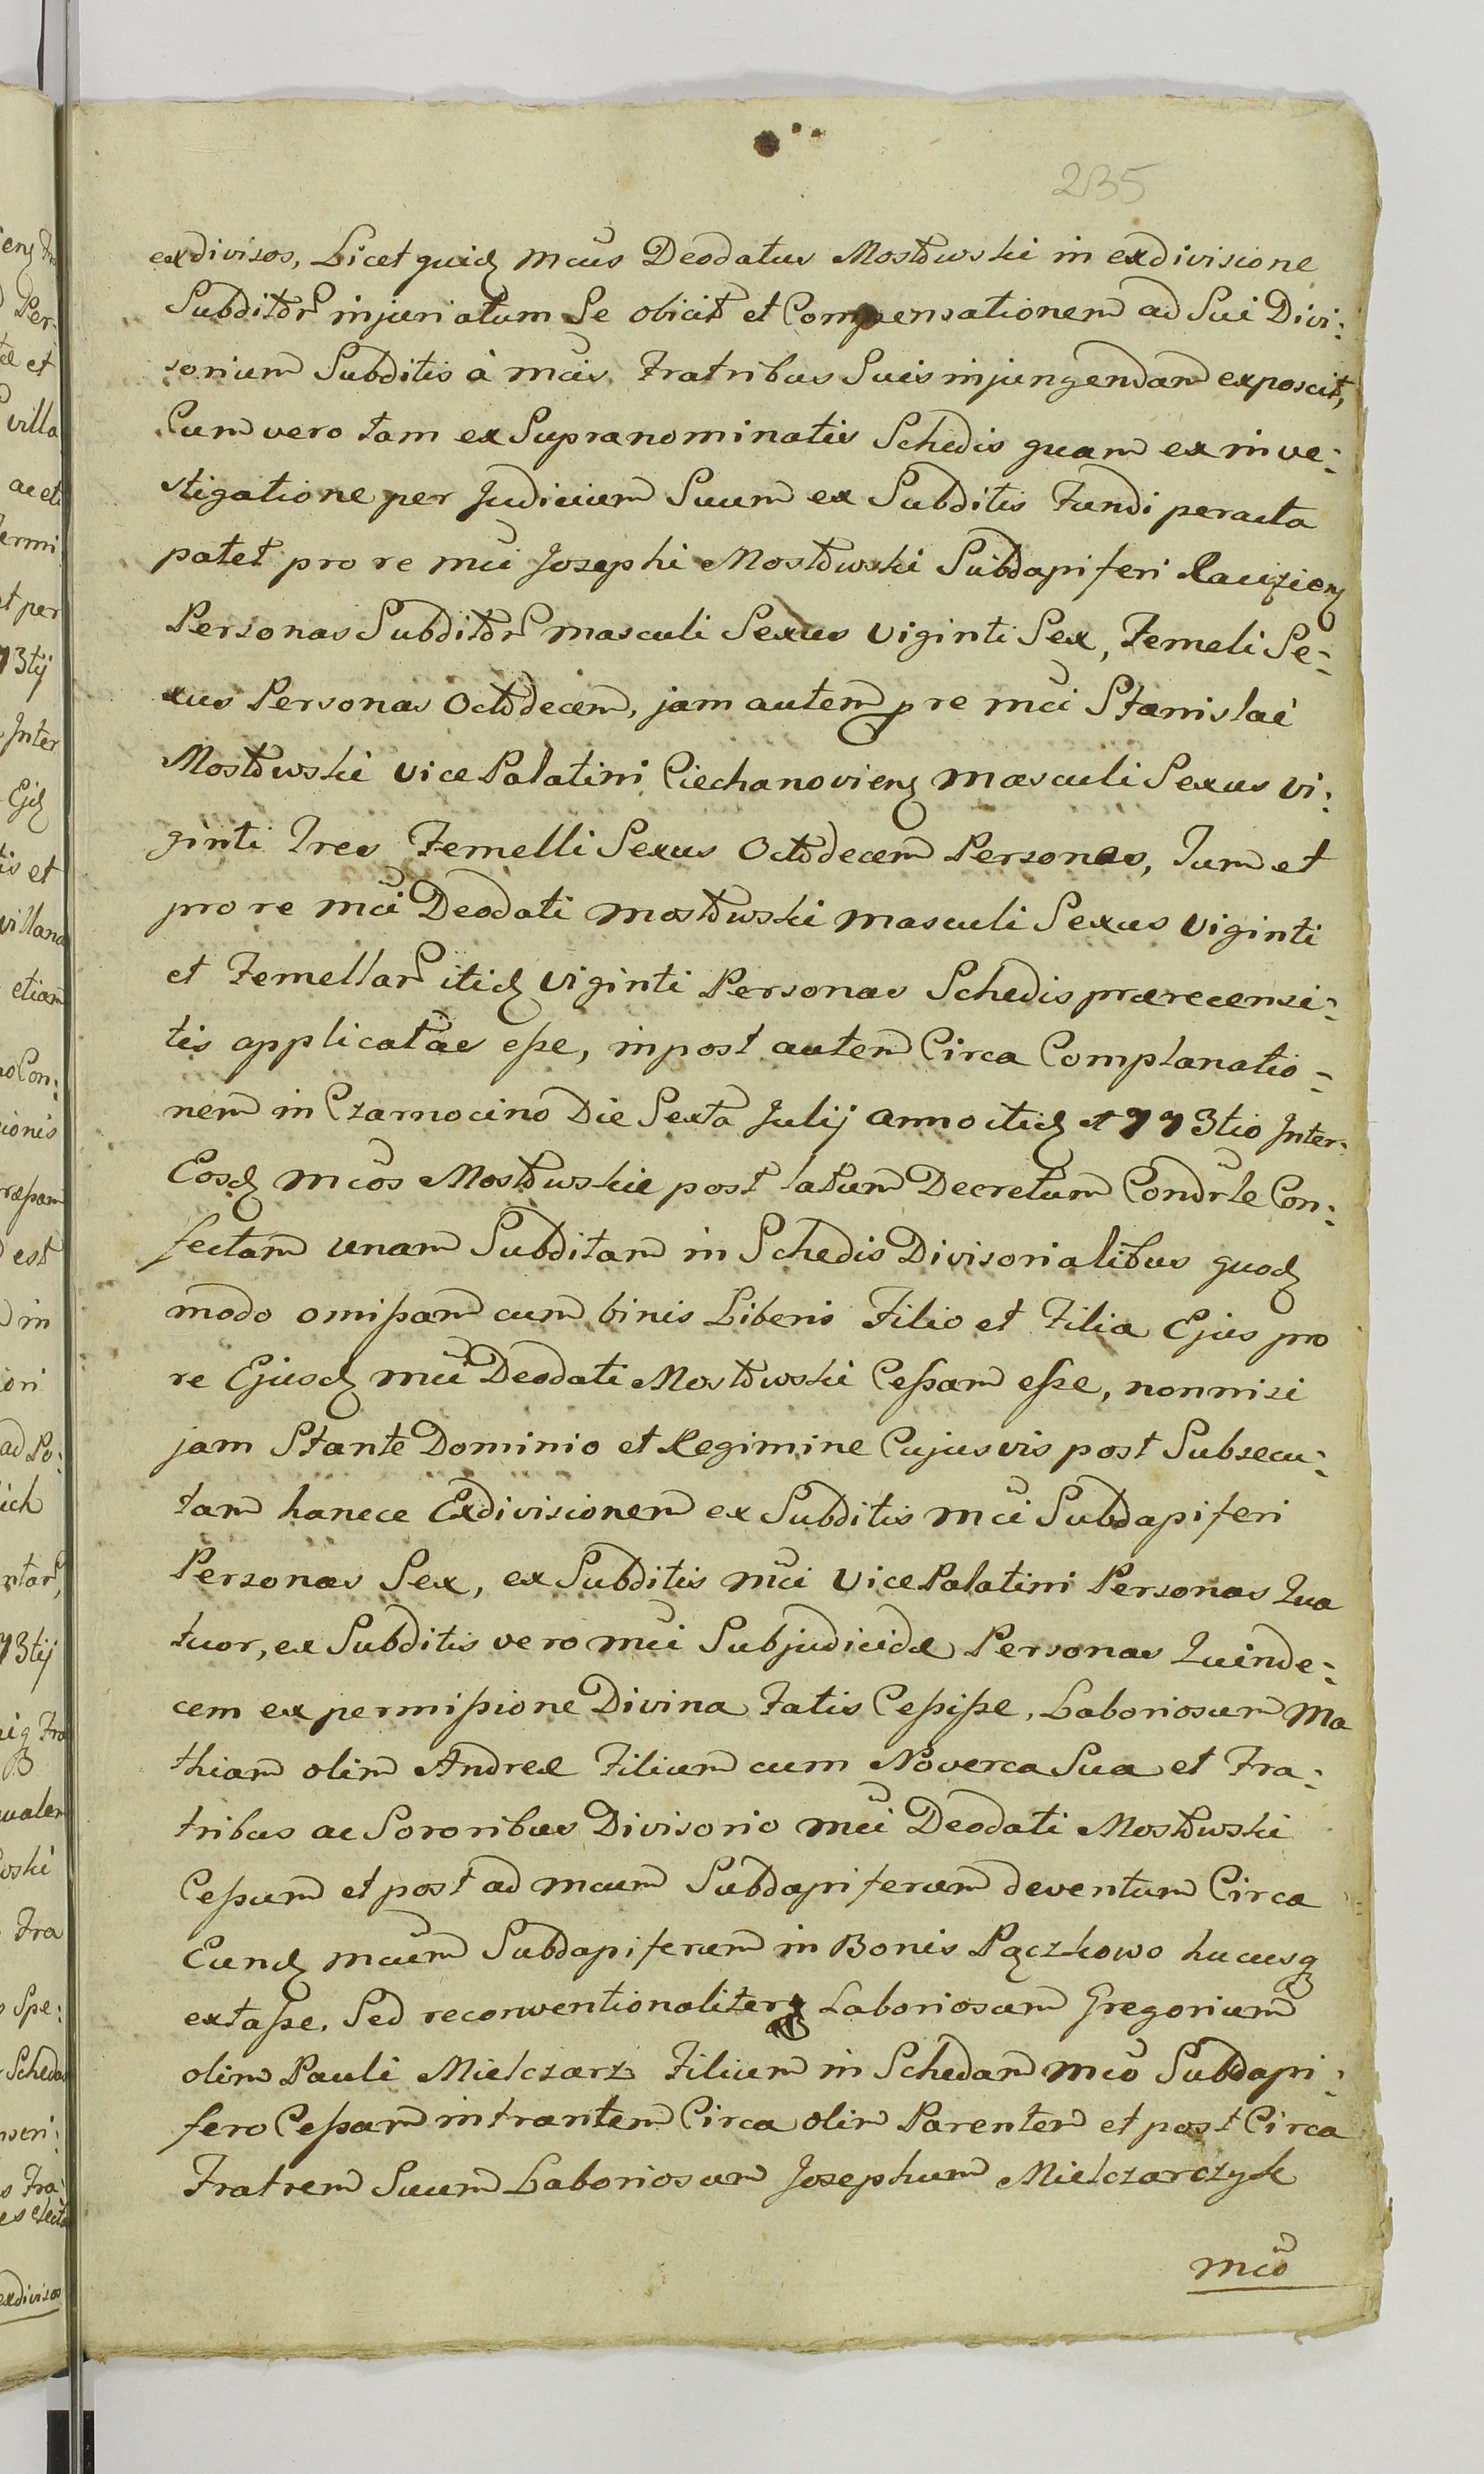 235
exdivisos, Licet quidȩ Mcus Deodatus Mostowski in exdivisione
Subditor injuriatum Se obicit et Compensationem ad Sui Divi:
sorium Subditis à Mcis Fratribus Suis injungendam exposcit,
Cum vero tam ex Supranominatis Schedis quam ex inve:
stigatione per Judicium Suum ex Subditis Fundi peracta
patet pro re Mci Josephi Mostowski Subdapiferi Rauzien
Personas Subditor masculi Sexus Viginti Sex, Femeli Se:
xus Personas Octodecem, jam autem p re Mci Stanislai
Mostowski Vice Palatini Ciechanovien Masculi Sexus Vi:
ginti Tres Femelli Sexus Octodecem Personas, Tum et
pro re Mci Deodati Mostowski Masculi Sexus Viginti
et Femellar itid Viginti Personas Schedis præcensi:
tis applicatas eße, inpost autem Circa Complanatio:
nem in Czarnocino Die Sexta Julij Anno itid 1773tio Inter
Eosd Mcos Mostowskie post latum Decretum Condrle Con:
fectam unam Subditam in Schedis Divisorialibus quod
modo omißam cum binis Liberis Filio et Filia Ejus pro
re Ejusd Mci Deodati Mostowski Ceßam eße, nonnisi
jam Stante Dominio et Regimine Cujusvis post Subsecu:
tam hancce Exdivisionem ex Subditis Mci Subdapiferi
Personas Sex, ex Subditis Mci Vice Palatini Personas Qua
tuor, ex Subditis vero Mci Subjudicidæ Personas Quinde:
cem ex permißione Divina Fatis Ceßiße, Laboriosum Ma
thiam olim Andreæ Filium cum Noverca Sua et Fra:
tribus ac Sororibus Divisorio Mci Deodati Mostowski
Ceßum et post ad Mcum Subdapiferum deventum Circa
Eund Mcum Subdapiferum in Bonis Pączkowo hucusq
extaße. Sed reconventionaliter Laboriosum Gregorium
olim Pauli Mielczarz Filium in Schedam Mco Subdapi:
fero Ceßam intrantem Circa olim Parentem et post Circa
Fratrem Suum Laboriosum Josephum Mielczarczyk
Mco